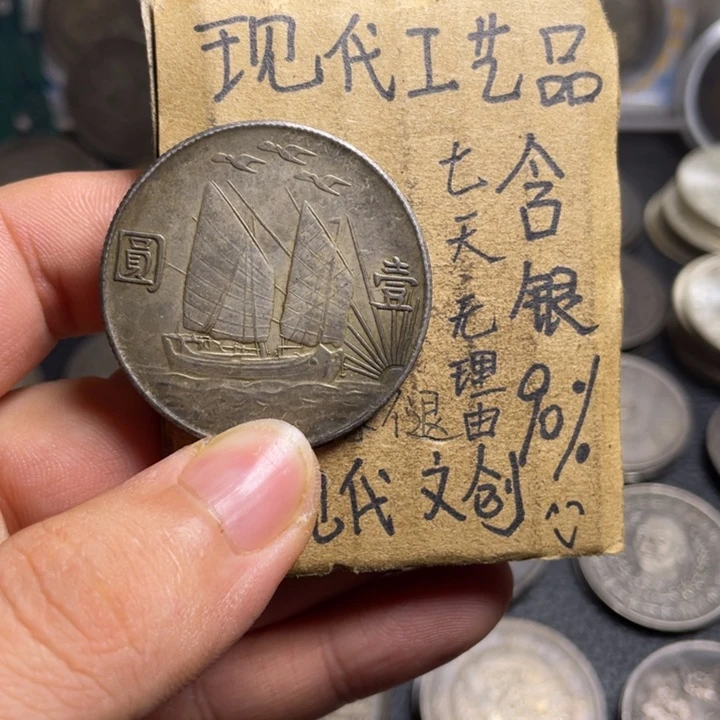 现代工艺品
含银90%
七天无理由
退
现代文创
圓 壹